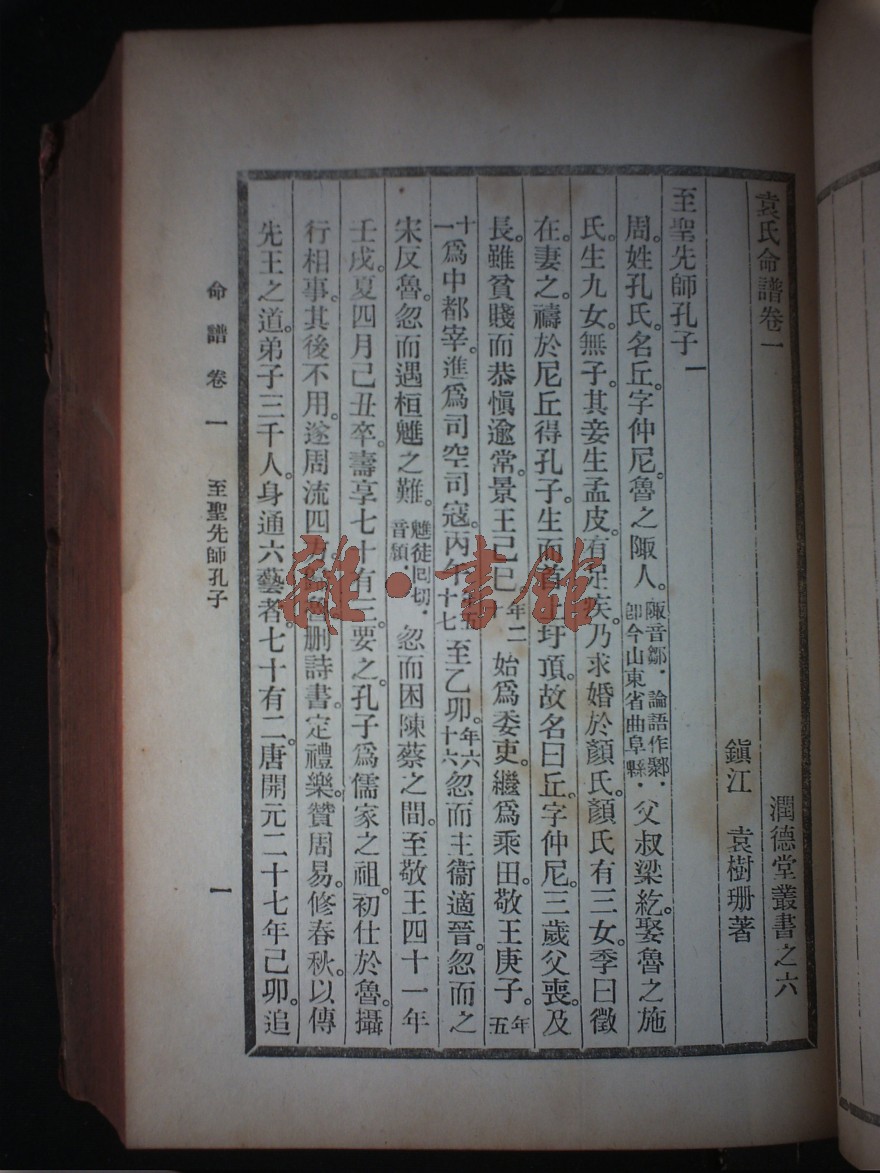 袁氏命譜卷一
潤德堂叢書之六
鎭江 袁樹珊著
至聖先師孔子一
周。姓孔氏。名丘。字仲尼。魯之陬人。陬音鄒．論語作鄹．卽今山東省曲阜縣．父叔梁紇。娶魯之施
氏。生九女。無子。其妾生孟皮。有足疾。乃求婚於顏氏。顏氏有三女。季曰徵
在。妻之。禱於尼丘得孔子。生而首上圩頂。故名曰丘。字仲尼。三歲父喪。及
長。雖貧賤而恭愼逾常。景王己巳年二十始爲委吏。繼爲乘田。敬王庚子。年五
十一爲中都宰。進爲司空司寇。丙午年五十七至乙卯。年六十六忽而主衞適晉。忽而之
宋反魯。忽而遇桓魋之難。魋徒回切．音頹．忽而困陳蔡之間。至敬王四十一年
壬戌。夏四月己丑卒。壽享七十有三。要之。孔子爲儒家之祖。初仕於魯。攝
行相事。其後不用。遂周流四方。魯刪詩書。定禮樂。贊周易。修春秋。以傳
先王之道。弟子三千人。身通六藝者。七十有二。唐開元二十七年己卯。追
命譜卷一 至聖先師孔子 一
雜·書館